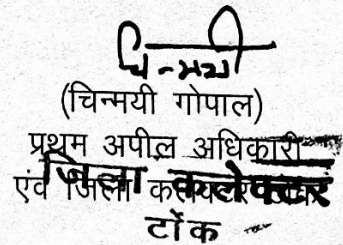 चिन्मयी
(चिन्मयी गोपाल)
प्रथम अपील अधिकारी
एवं जिला कलेक्टर
जिला कलेक्टर
टोंक